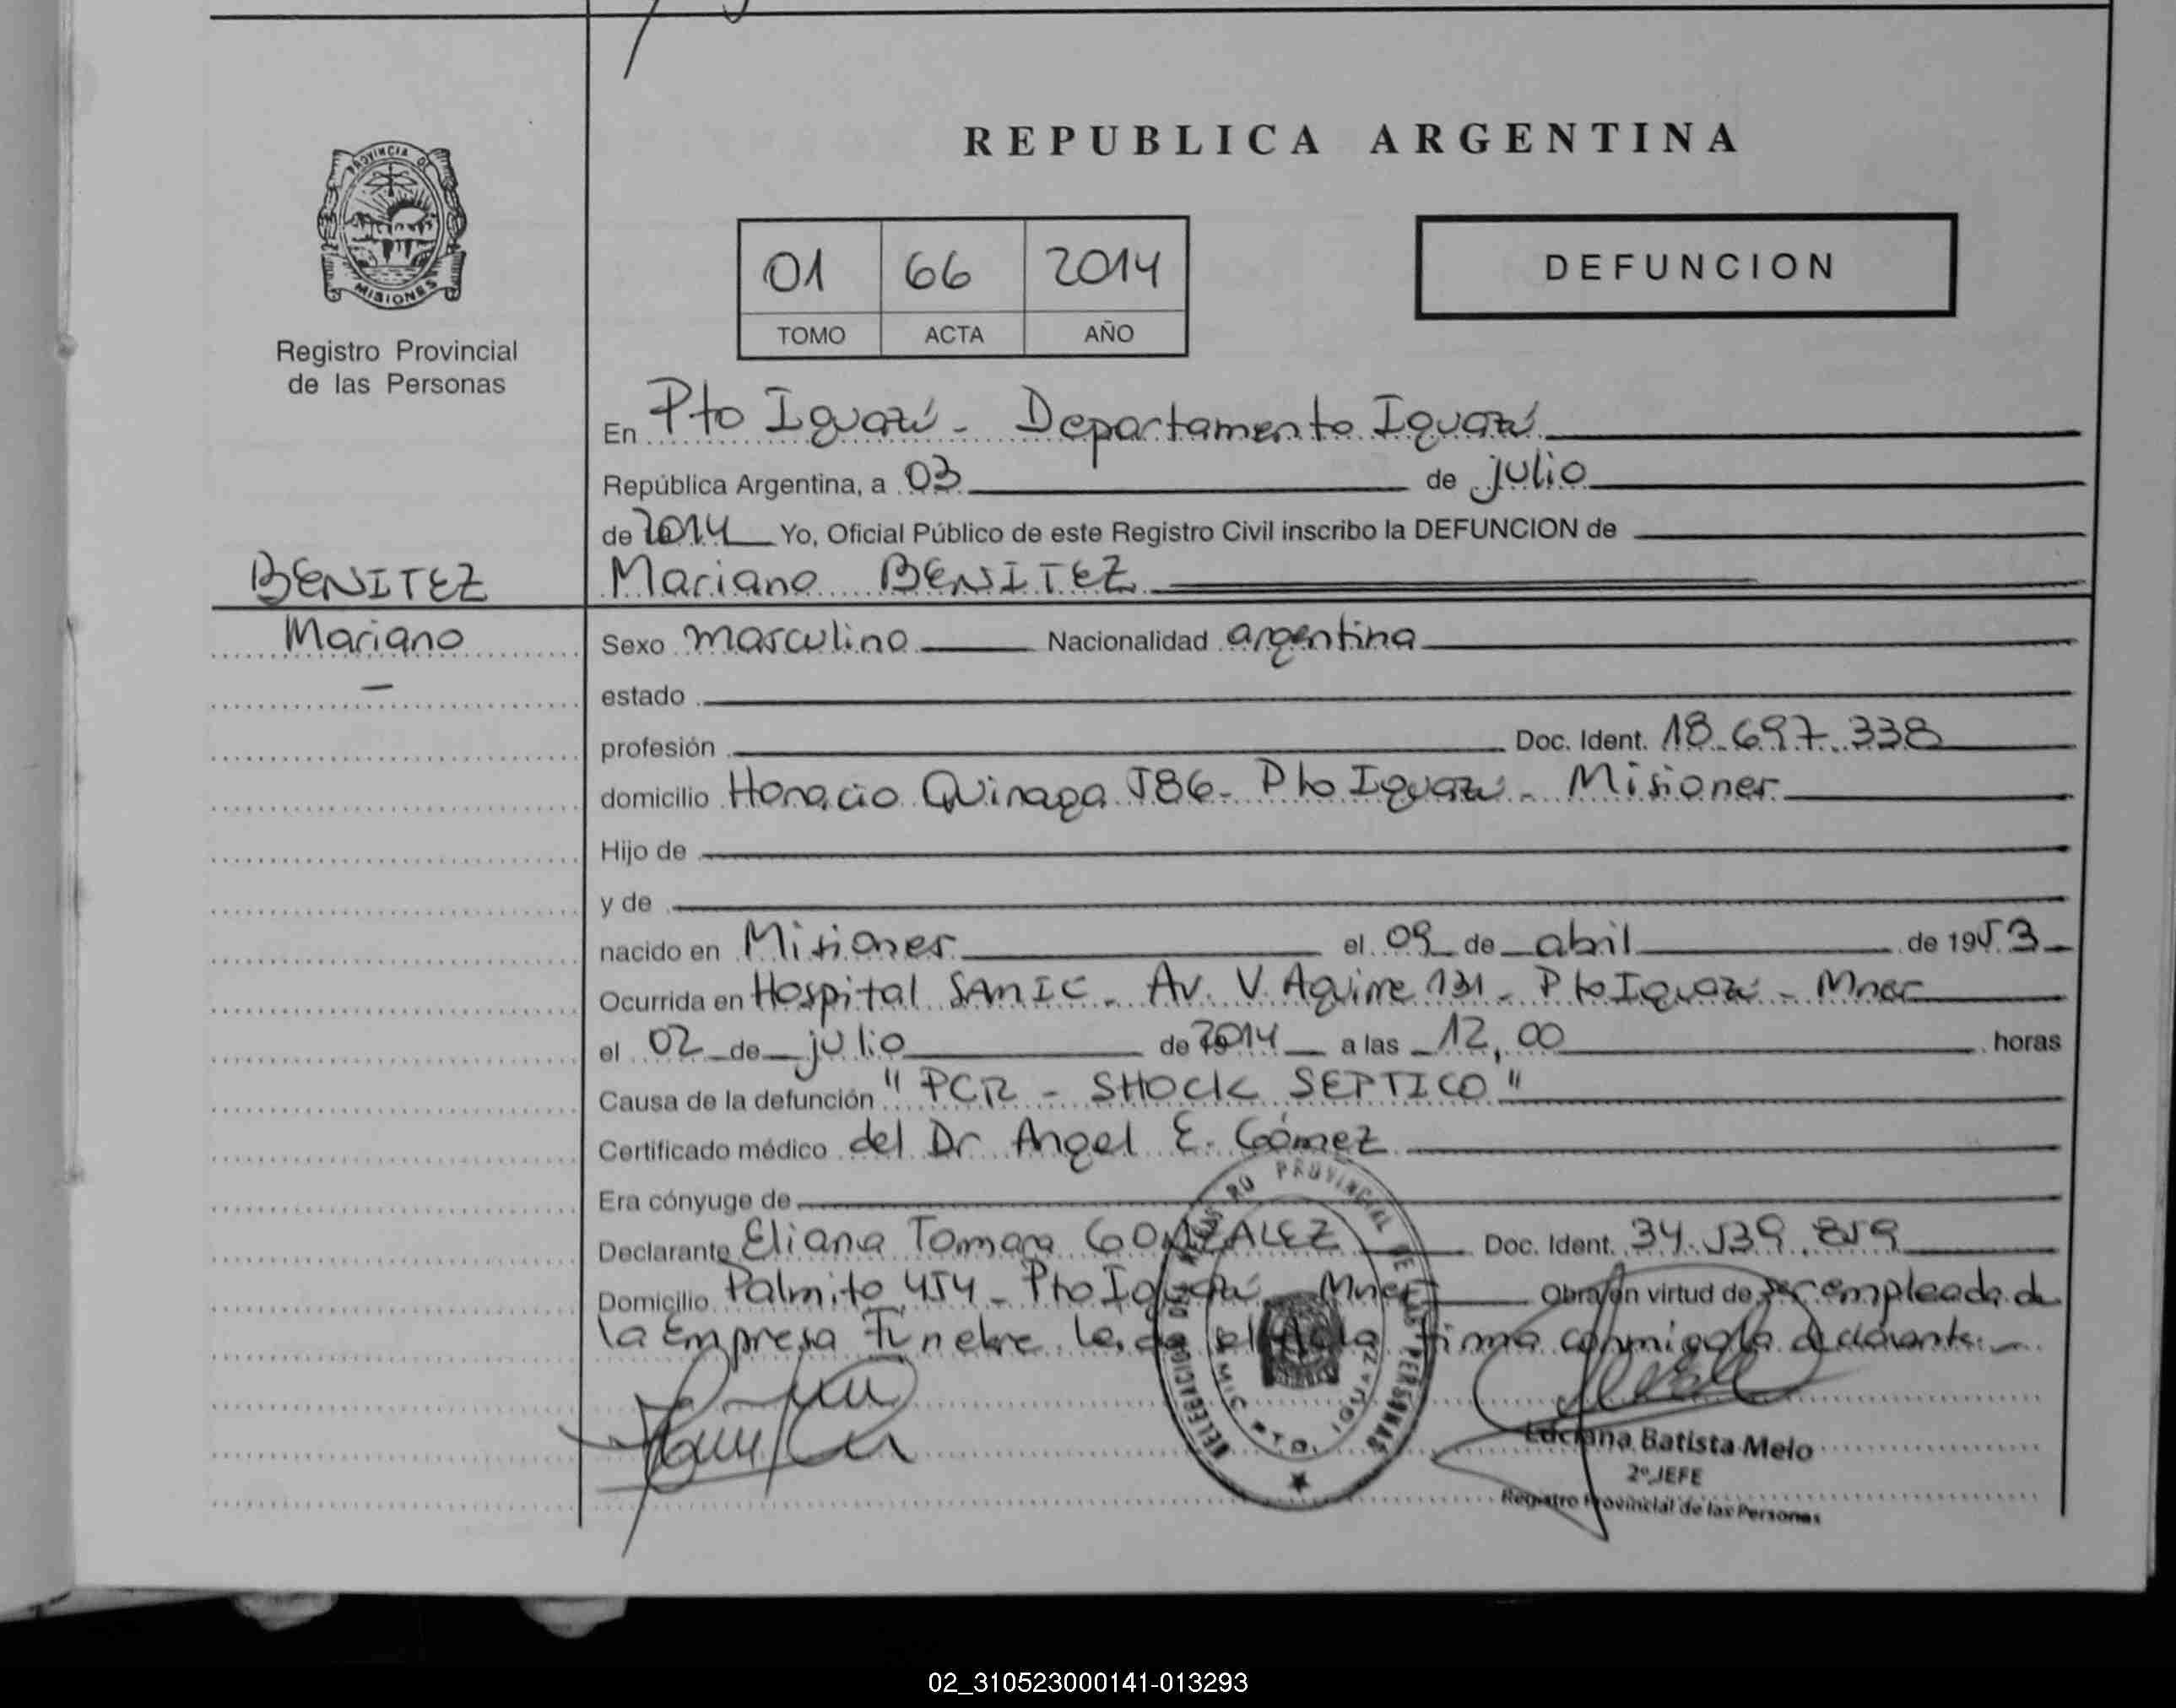 PROVINCIA DE
MISIONES
Registro Provincial
de las Personas
REPUBLICA ARGENTINA
01 66 2014
TOMO ACTA AÑO
DEFUNCION
En Pto Iguazú - Departamento Iguazú
República Argentina, a 03 de julio
de 2014 Yo, Oficial Público de este Registro Civil inscribo la DEFUNCION de
BENITEZ
Mariano BENITEZ
Mariano
Sexo masculino Nacionalidad argentina
estado
profesión Doc. Ident. 18.697.338
domicilio Horacio Quiroga 586 - Pto Iguazú - Misiones
Hijo de
y de
nacido en Misiones el 09 de abril de 1953
Ocurrida en Hospital SAMIC - Av. V. Aguirre 131 - Pto Iguazú - Mnes
el 02 de julio de 2014 a las 12,00 horas
Causa de la defunción "PCR - SHOCK SEPTICO"
Certificado médico del Dr Angel E. Gómez
Era cónyuge de
Declarante Eliana Tamara GONZALEZ Doc. Ident. 34.539.859
Domicilio Palmito 454 - Pto Iguazú Mnes Obra en virtud de ser empleada de
la Empresa Funebre Leida el Acta firma conmigo la declarante.-
REGISTRO PROVINCIAL DE LAS PERSONAS
DELEGACION
PTO. IGUAZU
Luciana Batista Melo
2º JEFE
Registro Provincial de las Personas
02_310523000141-013293